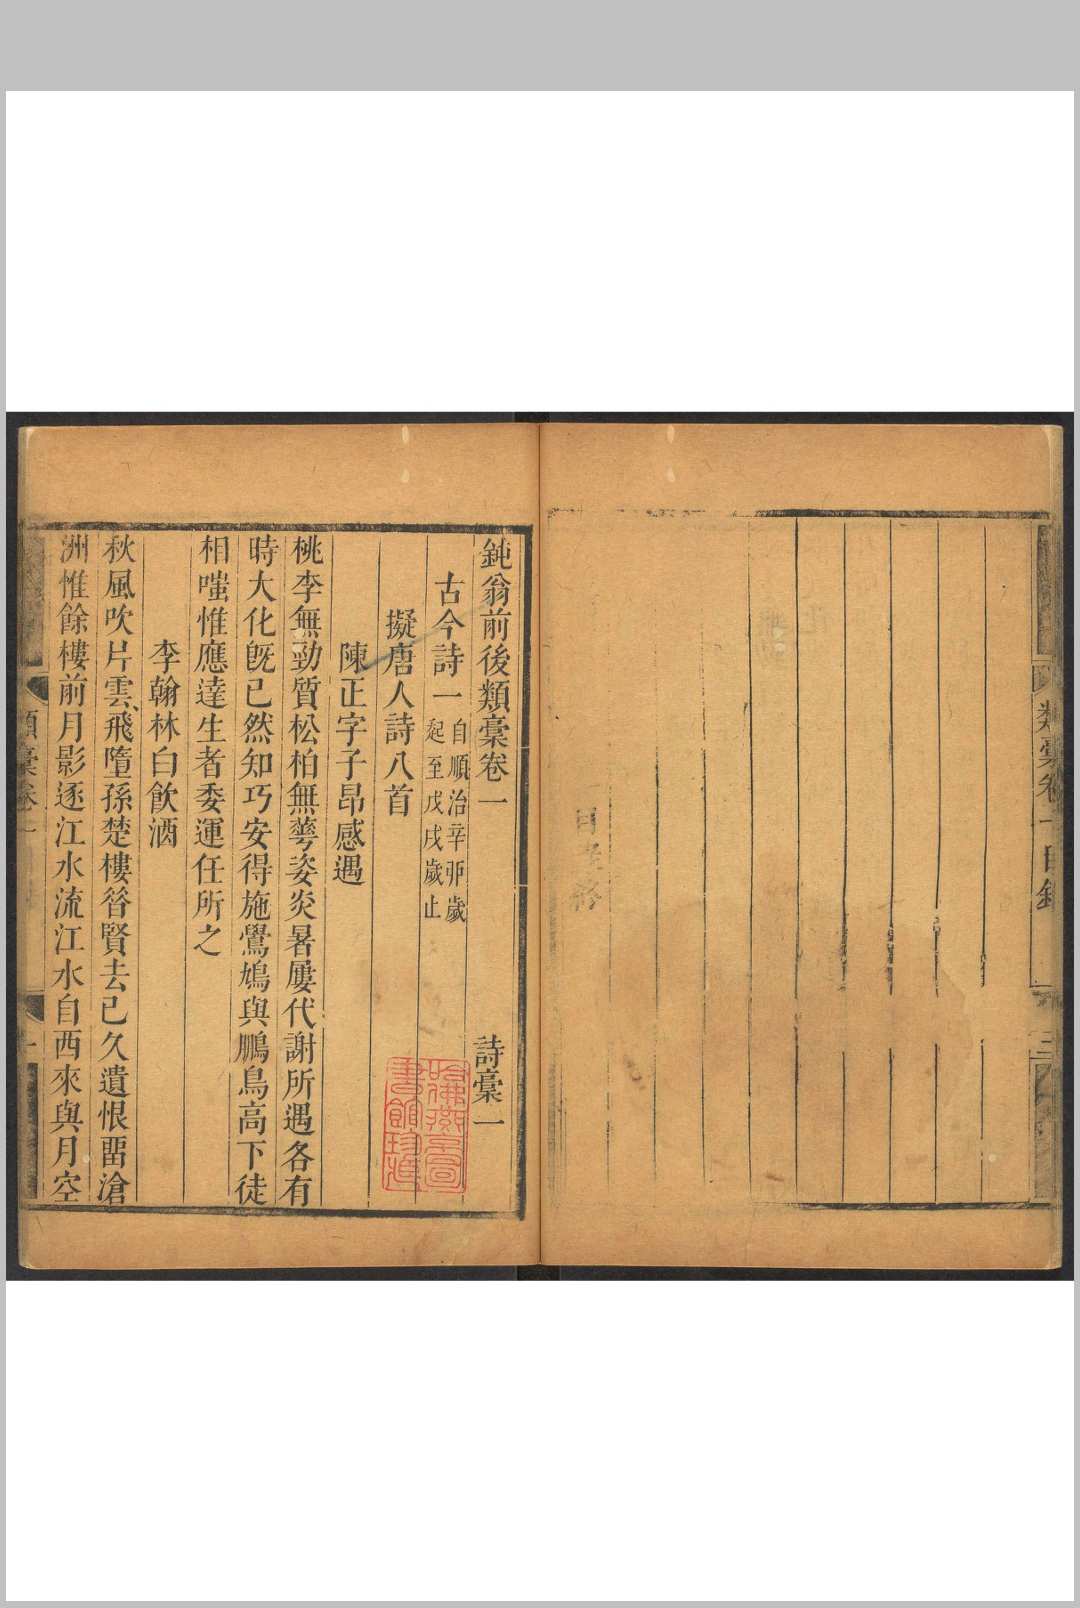 類藁卷一 目錄
三
鈍翁前後類藁卷一
詩藁一
古今詩一 自順治辛卯歲
起至戊戌歲止
擬唐人詩八首
陳正字子昂感遇
桃李無勁質松柏無蕚姿炎暑屢代謝所遇各有
時大化旣已然知巧安得施鷽鳩與鵬鳥高下徒
相嗤惟應達生者委運任所之
李翰林白飲酒
秋風吹片雲飛墮孫楚樓昝賢去已久遺恨畱滄
洲惟餘樓前月影逐江水流江水自西來與月空
類藁卷一
一
哈佛燕京圖
書館珍藏